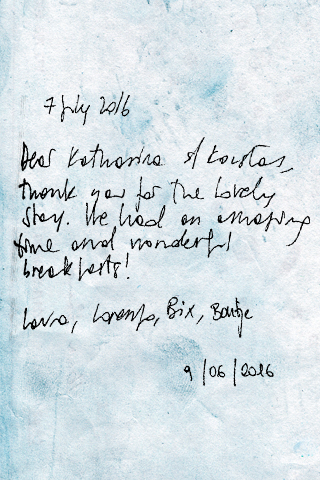 7 July 2016
Dear Katharina & Kostas,
thank you for the lovely
stay. We had an amazing
time and wonderful
breakfasts!
Laura, Lorenzo, Bix,
9/06/2016